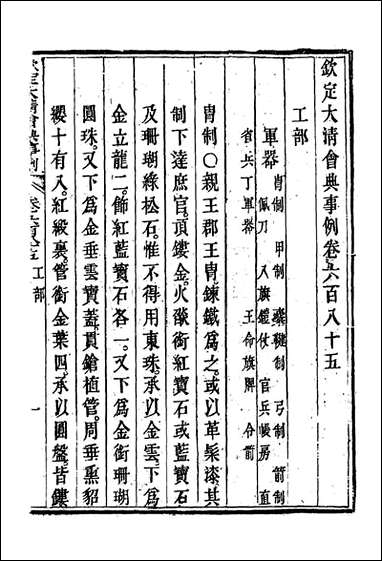 欽定大清會典事例卷六百八十五
工部
軍器 胄制 甲制 櫜鞬制 弓制 箭制
佩刀 八旗鎧仗 官兵帳房 直
省兵丁軍器 王命旗牌 令箭
胄制〇親王郡王胄鍊鐵爲之。或以革髹漆其
制下達庶官。頂鏤金。火𦦨銜紅寶石或藍寶石
及珊瑚綠松石。惟不得用東珠。承以金雲。下爲
金立龍二。飾紅藍寶石各一。又下爲金銜珊瑚
圓珠。又下爲金垂雲寶蓋。貫鎗植管。周垂熏貂
纓十有八。紅緞裏。管銜金葉四。承以圓盤。皆鏤
欽定大清會典事例
工部
一